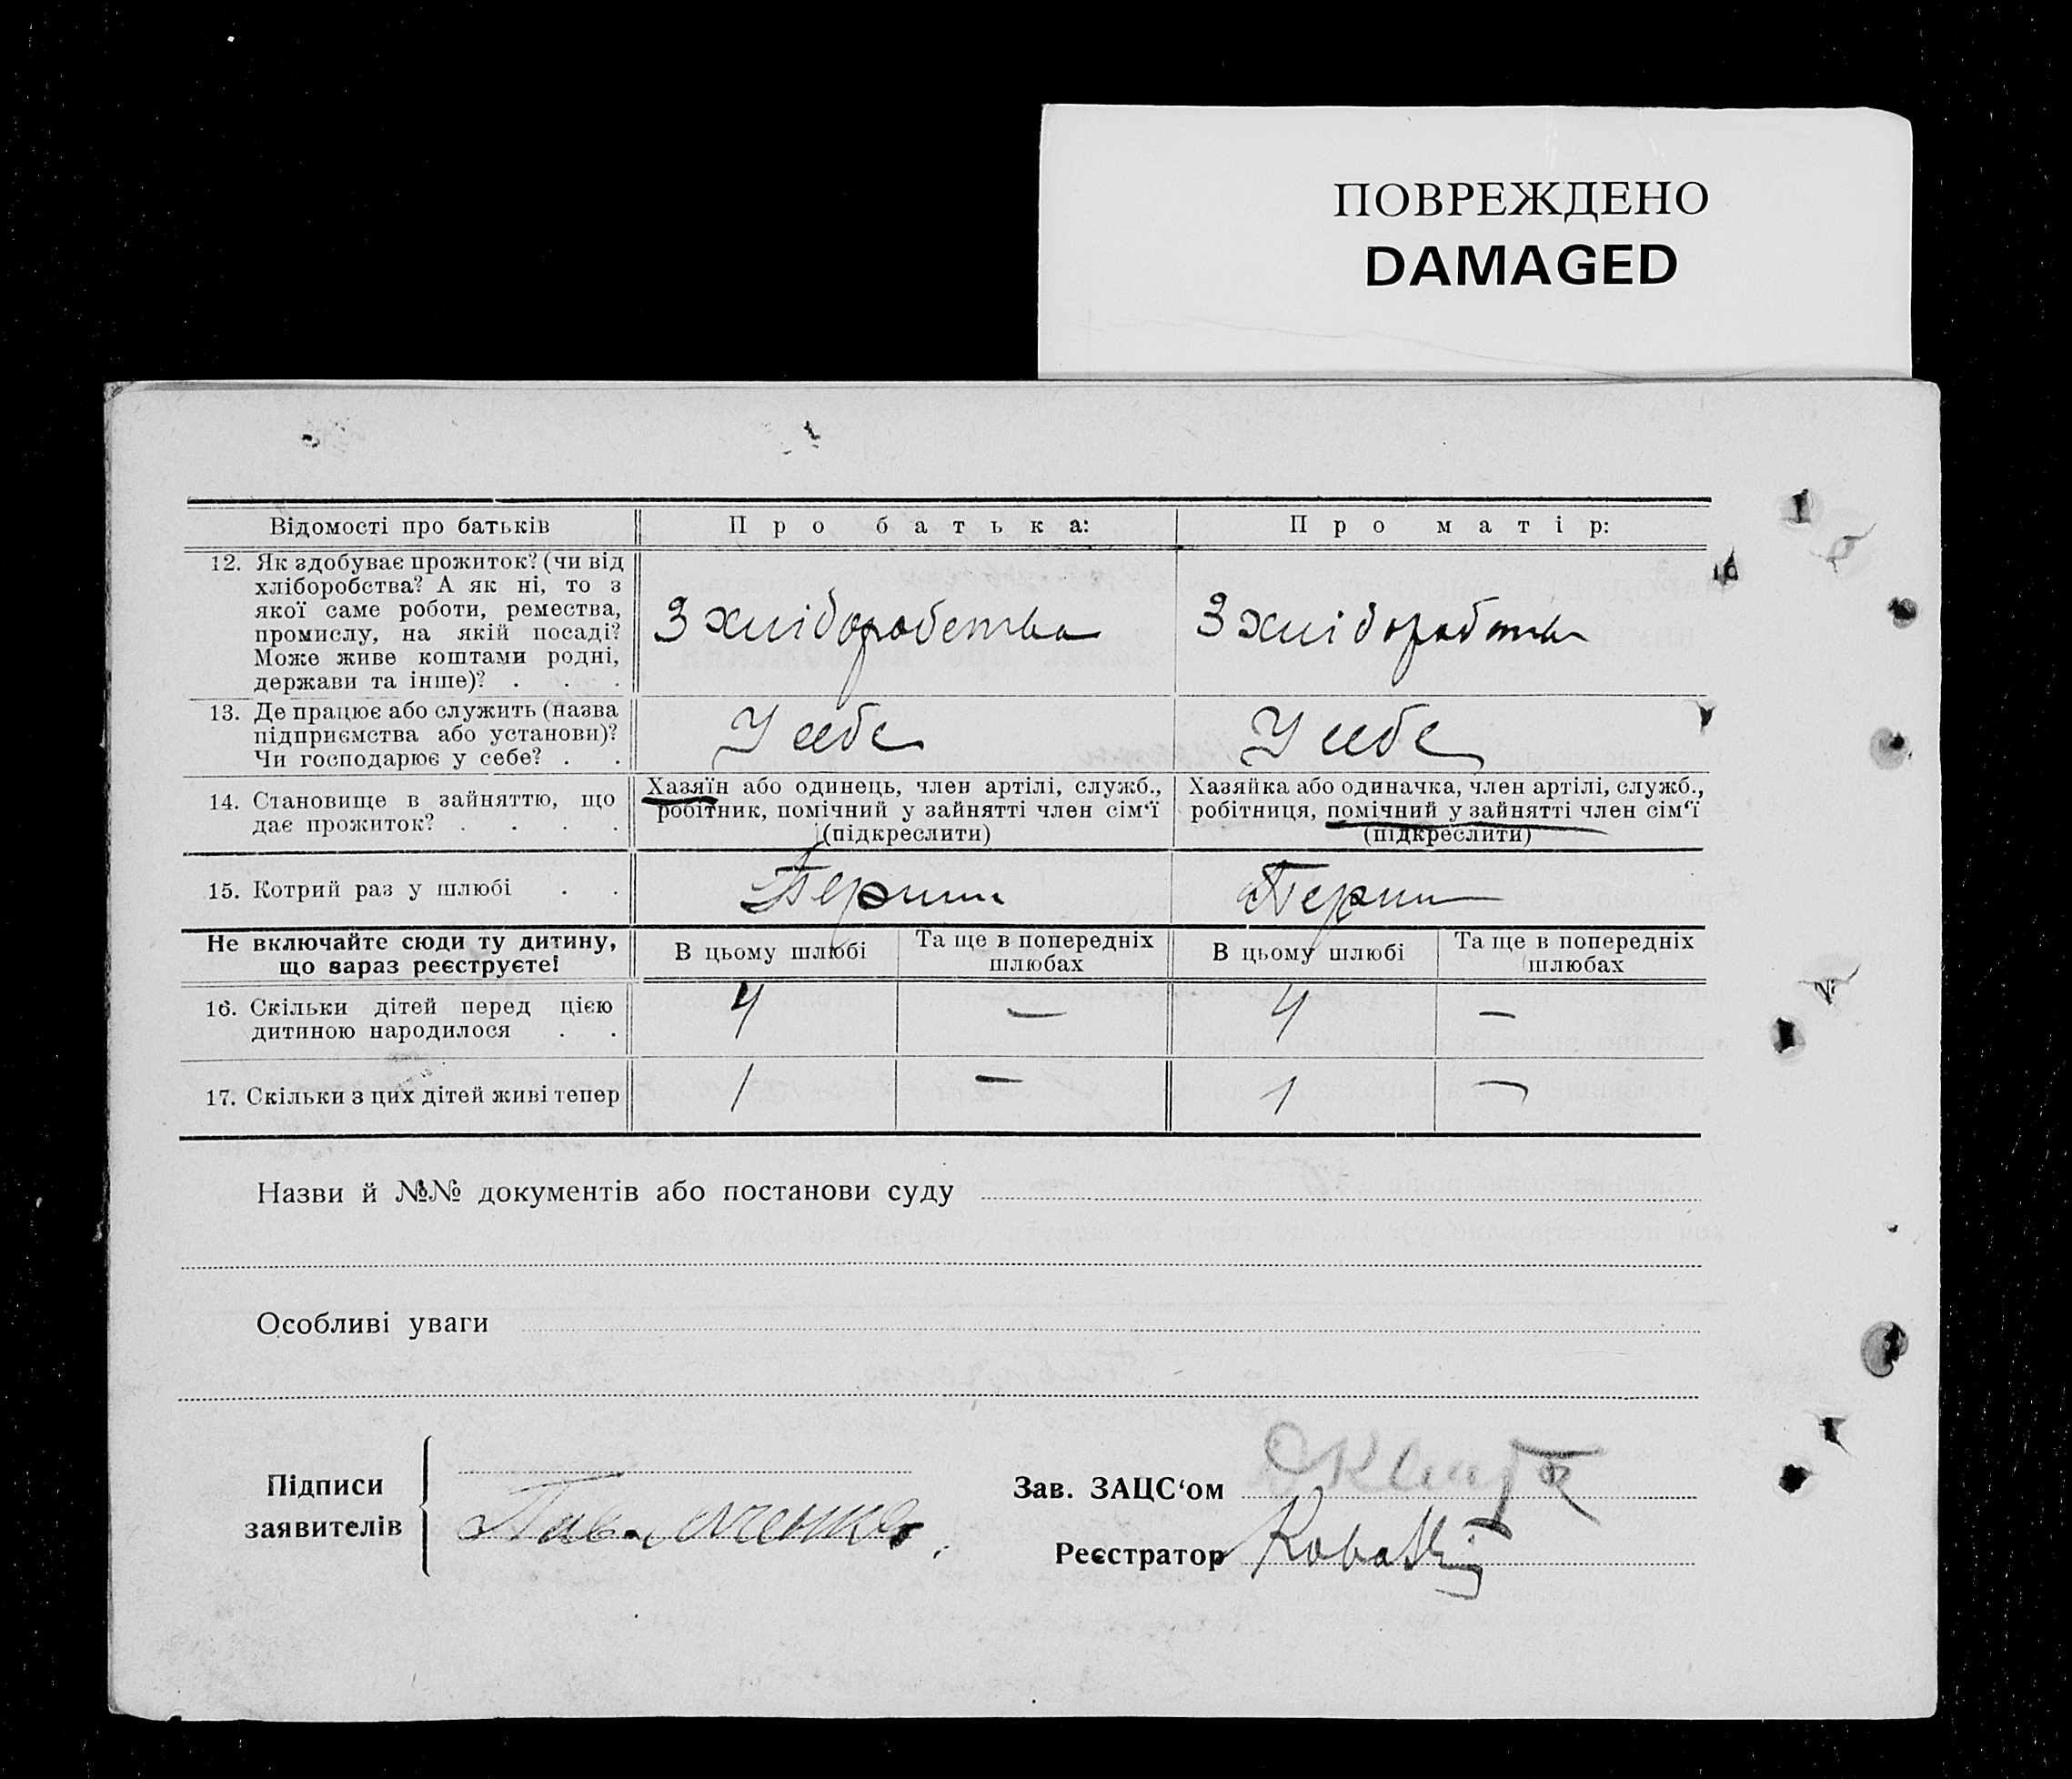 ПОВРЕЖДЕНО
DAMAGED
Відомості про батьків
Про батька:
Про матір:
12. Як здобуває прожиток? (чи від
хліборобства? А як ні, то з
якої саме роботи, ремества,
промислу, на якій посаді?
Може живе коштами родні,
держави та інше)? . . .
З хліборобства
З хліборобства
13. Де працює або служить (назва
підприємства або установи)?
Чи господарює у себе? . .
У себе
У себе
14. Становище в зайняттю, що
дає прожиток? . . . .
Хазяїн або одинець, член артілі, служб.,
робітник, помічний у зайнятті член сім‘ї
(підкреслити)
Хазяйка або одиначка, член артілі, служб.,
робітниця, помічний у зайнятті член сім‘ї
(підкреслити)
15. Котрий раз у шлюбі . .
Перший
Перший
Не включайте сюди ту дитину,
що зараз реєструєте!
В цьому шлюбі
Та ще в попередніх
шлюбах
В цьому шлюбі
Та ще в попередніх
шлюбах
16. Скільки дітей перед цією
дитиною народилося . .
4 — 4 —
17. Скільки з цих дітей живі тепер
1 — 1 —
Назви й №№ документів або постанови суду
Особливі уваги
Підписи
заявителів
Зав. ЗАЦС‘ом
Реєстратор